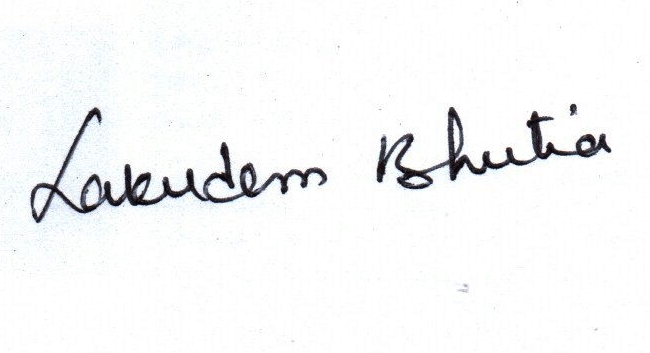 Lakudem Bhutia